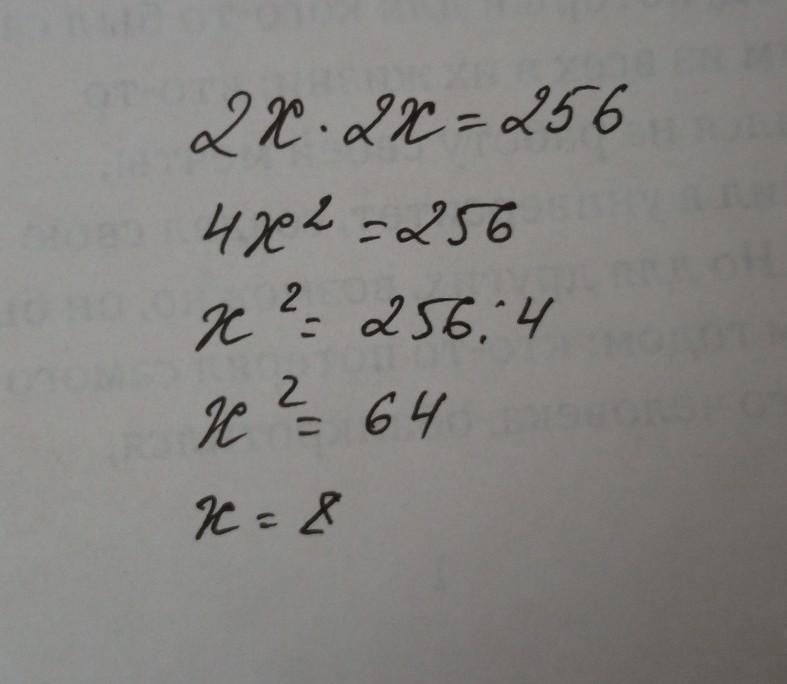 2x · 2x = 256
4x² = 256
x² = 256 : 4
x² = 64
x = 8